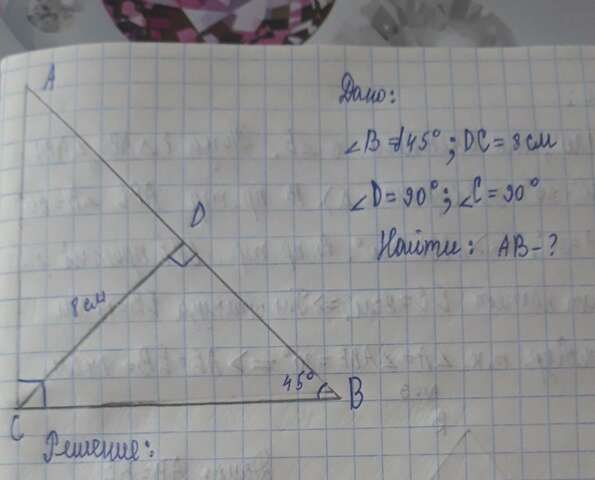 A
Дано:
∠B = 45° ; DC = 8 см
∠D = 90° ; ∠C = 90°
D
Найти: AB - ?
8 см
45°
B
C
Решение: